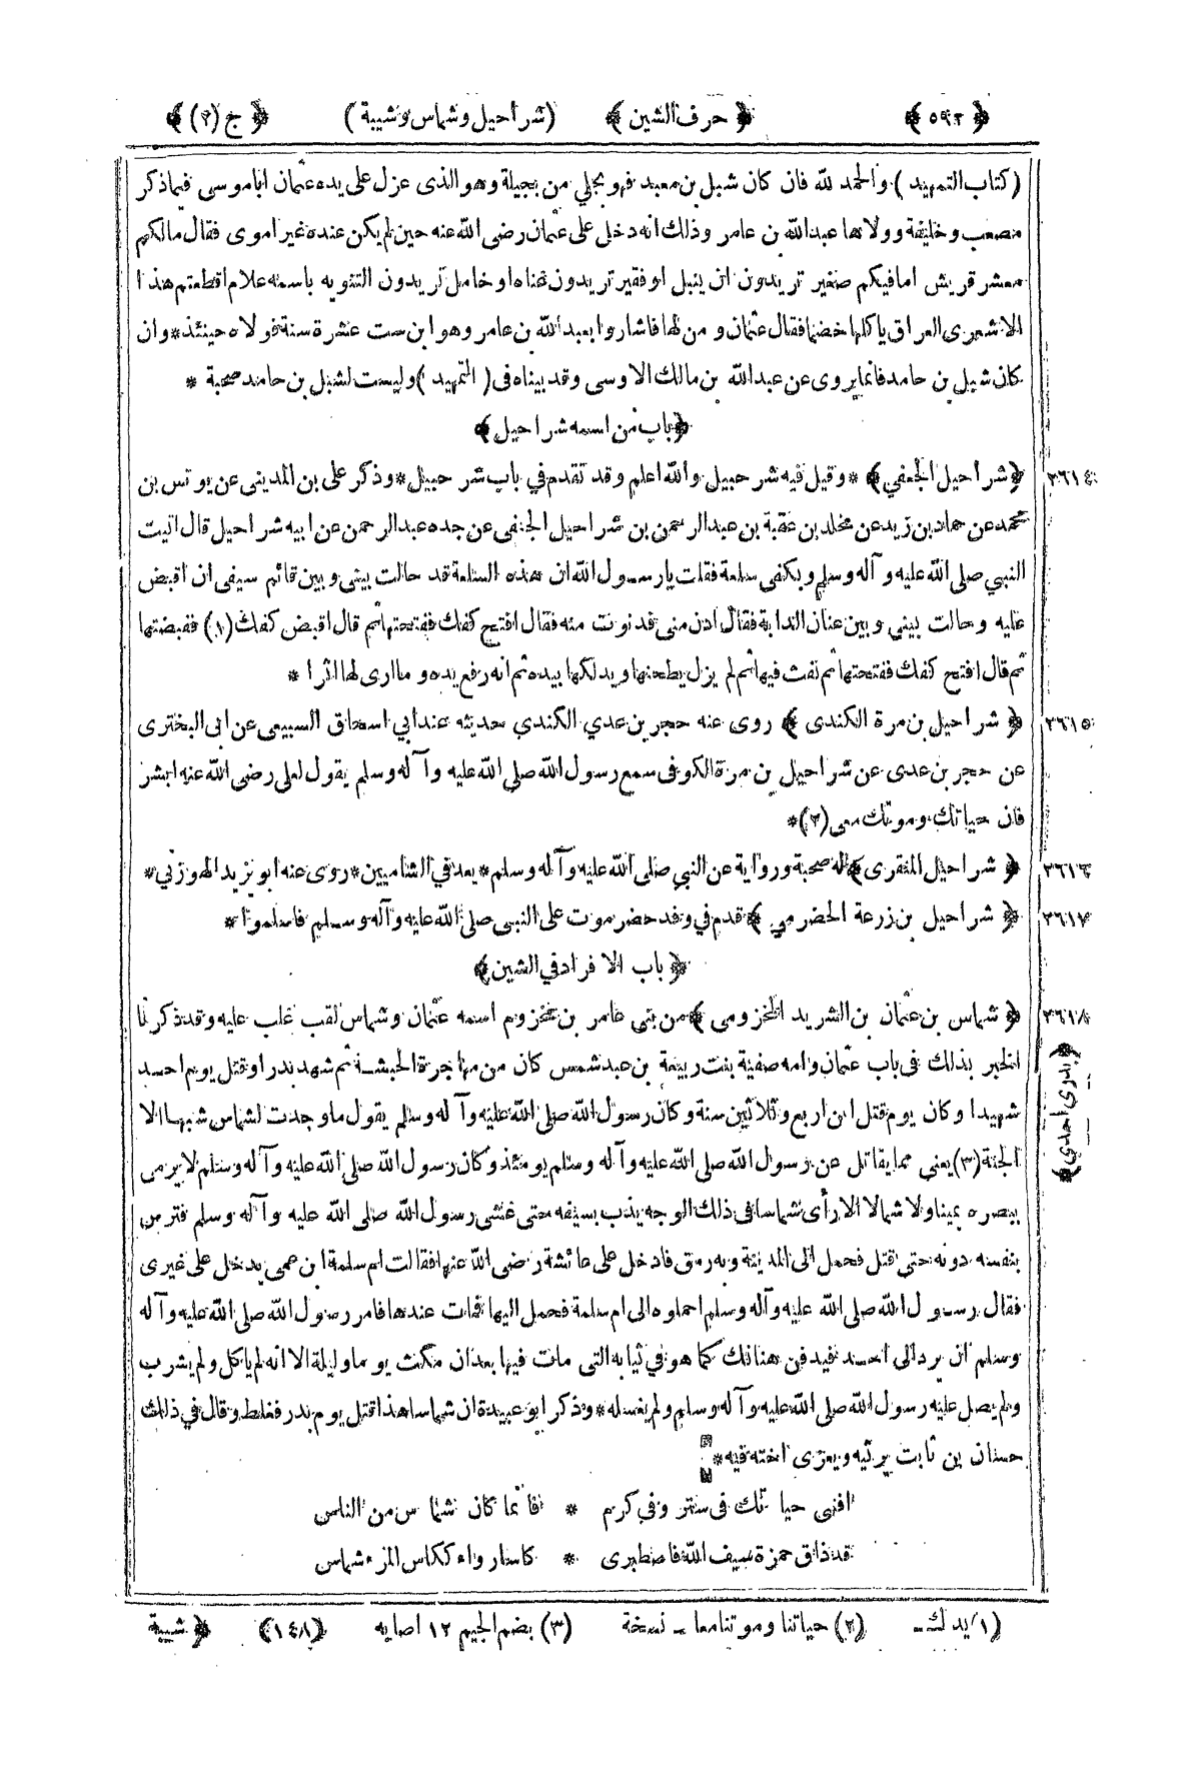 ﴿ ٥٩٢ ﴾ ﴿ حرف الشين ﴾ ( شراحيل وشماس وشيبة ) ﴿ ج (٢) ﴾
( كتاب التمهيد ) والحمد لله فان كان شبل بن معبد فهو بجلي من بجيلة وهو الذى عزل على يده عثمان اباموسى فيما ذكر
مصعب وخليفة وولاها عبدالله بن عامر وذلك انه دخل على عثمان رضى الله عنه حين لم يكن عنده غير اموى فقال مالكم
معشر قريش امافيكم صغير تريدون ان ينبل اوفقير تريدون غناه اوخامل تريدون التنويه باسمه علام اقطعتم هذا
الاشعرى العراق ياكلها خضما فقال عثمان ومن لها فاشاروا بعبدالله بن عامر وهو ابن ست عشرة سنة فولاه حينئذ * وان
كان شبل بن حامد فانما يروى عن عبدالله بن مالك الاوسى وقد بيناه فى ( التمهيد ) وليست لشبل بن حامد صحبة *
﴿ باب من اسمه شراحيل ﴾
٢٦١٤ ﴿ شراحيل الجعفي ﴾ * وقيل فيه شرحبيل والله اعلم وقد تقدم في باب شرحبيل * وذكر على بن المدينى عن يونس بن
محمد عن حماد بن زيد عن مخلد بن عقبة بن عبدالرحمن بن شراحيل الجعفى عن جده عبدالرحمن عن ابيه شراحيل قال اتيت
النبي صلى الله عليه وآله وسلم وبكفى سلعة فقلت يارسول الله ان هذه السلعة قد حالت بيني وبين قائم سيفى ان اقبض
عليه وحالت بيني وبين عنان الدابة فقال ادن منى فدنوت منه فقال افتح كفك ففتحتها ثم قال اقبض كفك (١) فقبضتها
ثم قال افتح كفك ففتحتها ثم نفث فيها ثم لم يزل يطحنها ويدلكها بيده ثم انه رفع يده وما ارى لها اثرا *
٢٦١٥ ﴿ شراحيل بن مرة الكندى ﴾ روى عنه حجر بن عدي الكندي حديثه عندابي اسحاق السبيعى عن ابى البخترى
عن حجر بن عدى عن شراحيل بن مرة الكوفى سمع رسول الله صلى الله عليه وآله وسلم يقول لعلى رضى الله عنه ابشر
فان حياتك وموتك معى (٢) *
٢٦١٦ ﴿ شراحيل المنقرى ﴾ له صحبة ورواية عن النبي صلى الله عليه وآله وسلم * يعد في الشاميين * روى عنه ابو يزيد الهوزني *
٢٦١٧ ﴿ شراحيل بن زرعة الحضرمي ﴾ قدم في وفد حضرموت على النبى صلى الله عليه وآله وسلم فاسلموا *
﴿ باب الافراد في الشين ﴾
٢٦١٨ ﴿ شماس بن عثمان بن الشريد المخزومى ﴾ من بنى عامر بن مخزوم اسمه عثمان وشماس لقب غلب عليه وقد ذكرنا
﴿ بدرى احدي ﴾
الخبر بذلك فى باب عثمان وامه صفية بنت ربيعة بن عبدشمس كان من مهاجرة الحبشة ثم شهد بدرا وقتل يوم احد
شهيدا وكان يوم قتل ابن اربع وثلاثين سنة وكان رسول الله صلى الله عليه وآله وسلم يقول ماوجدت لشماس شبها الا
الجنة (٣) يعنى مما يقاتل عن رسول الله صلى الله عليه وآله وسلم يومئذ وكان رسول الله صلى الله عليه وآله وسلم لايرمى
ببصره يمينا ولا شمالا الا رأى شماسا فى ذلك الوجه يذب بسيفه حتى غشى رسول الله صلى الله عليه وآله وسلم فترس
بنفسه دونه حتى قتل فحمل الى المدينة وبه رمق فادخل على عائشة رضى الله عنها فقالت ام سلمة ابن عمى يدخل على غيرى
فقال رسول الله صلى الله عليه وآله وسلم احملوه الى ام سلمة فحمل اليها فمات عندها فامر رسول الله صلى الله عليه وآله
وسلم ان يرد الى احد فيدفن هنالك كما هو في ثيابه التى مات فيها بعدان مكث يوما وليلة الا انه لم ياكل ولم يشرب
ولم يصل عليه رسول الله صلى الله عليه وآله وسلم ولم يغسله * وذكر ابو عبيدة ان شماسا هذا قتل يوم بدر فغلط وقال في ذلك
حسان بن ثابت يرثيه ويعزى اخته فيه *
اقنى حياتك فى ستر وفي كرم * فانما كان شماس من الناس
قد ذاق حمزة سيف الله فاصطبرى * كاسا رواء ككاس المرء شماس
(١) يدك ـ (٢) حياتنا وموتنا معا ـ نسخة (٣) بضم الجيم ١٢ اصابه (١٤٨) ﴿ شيبة